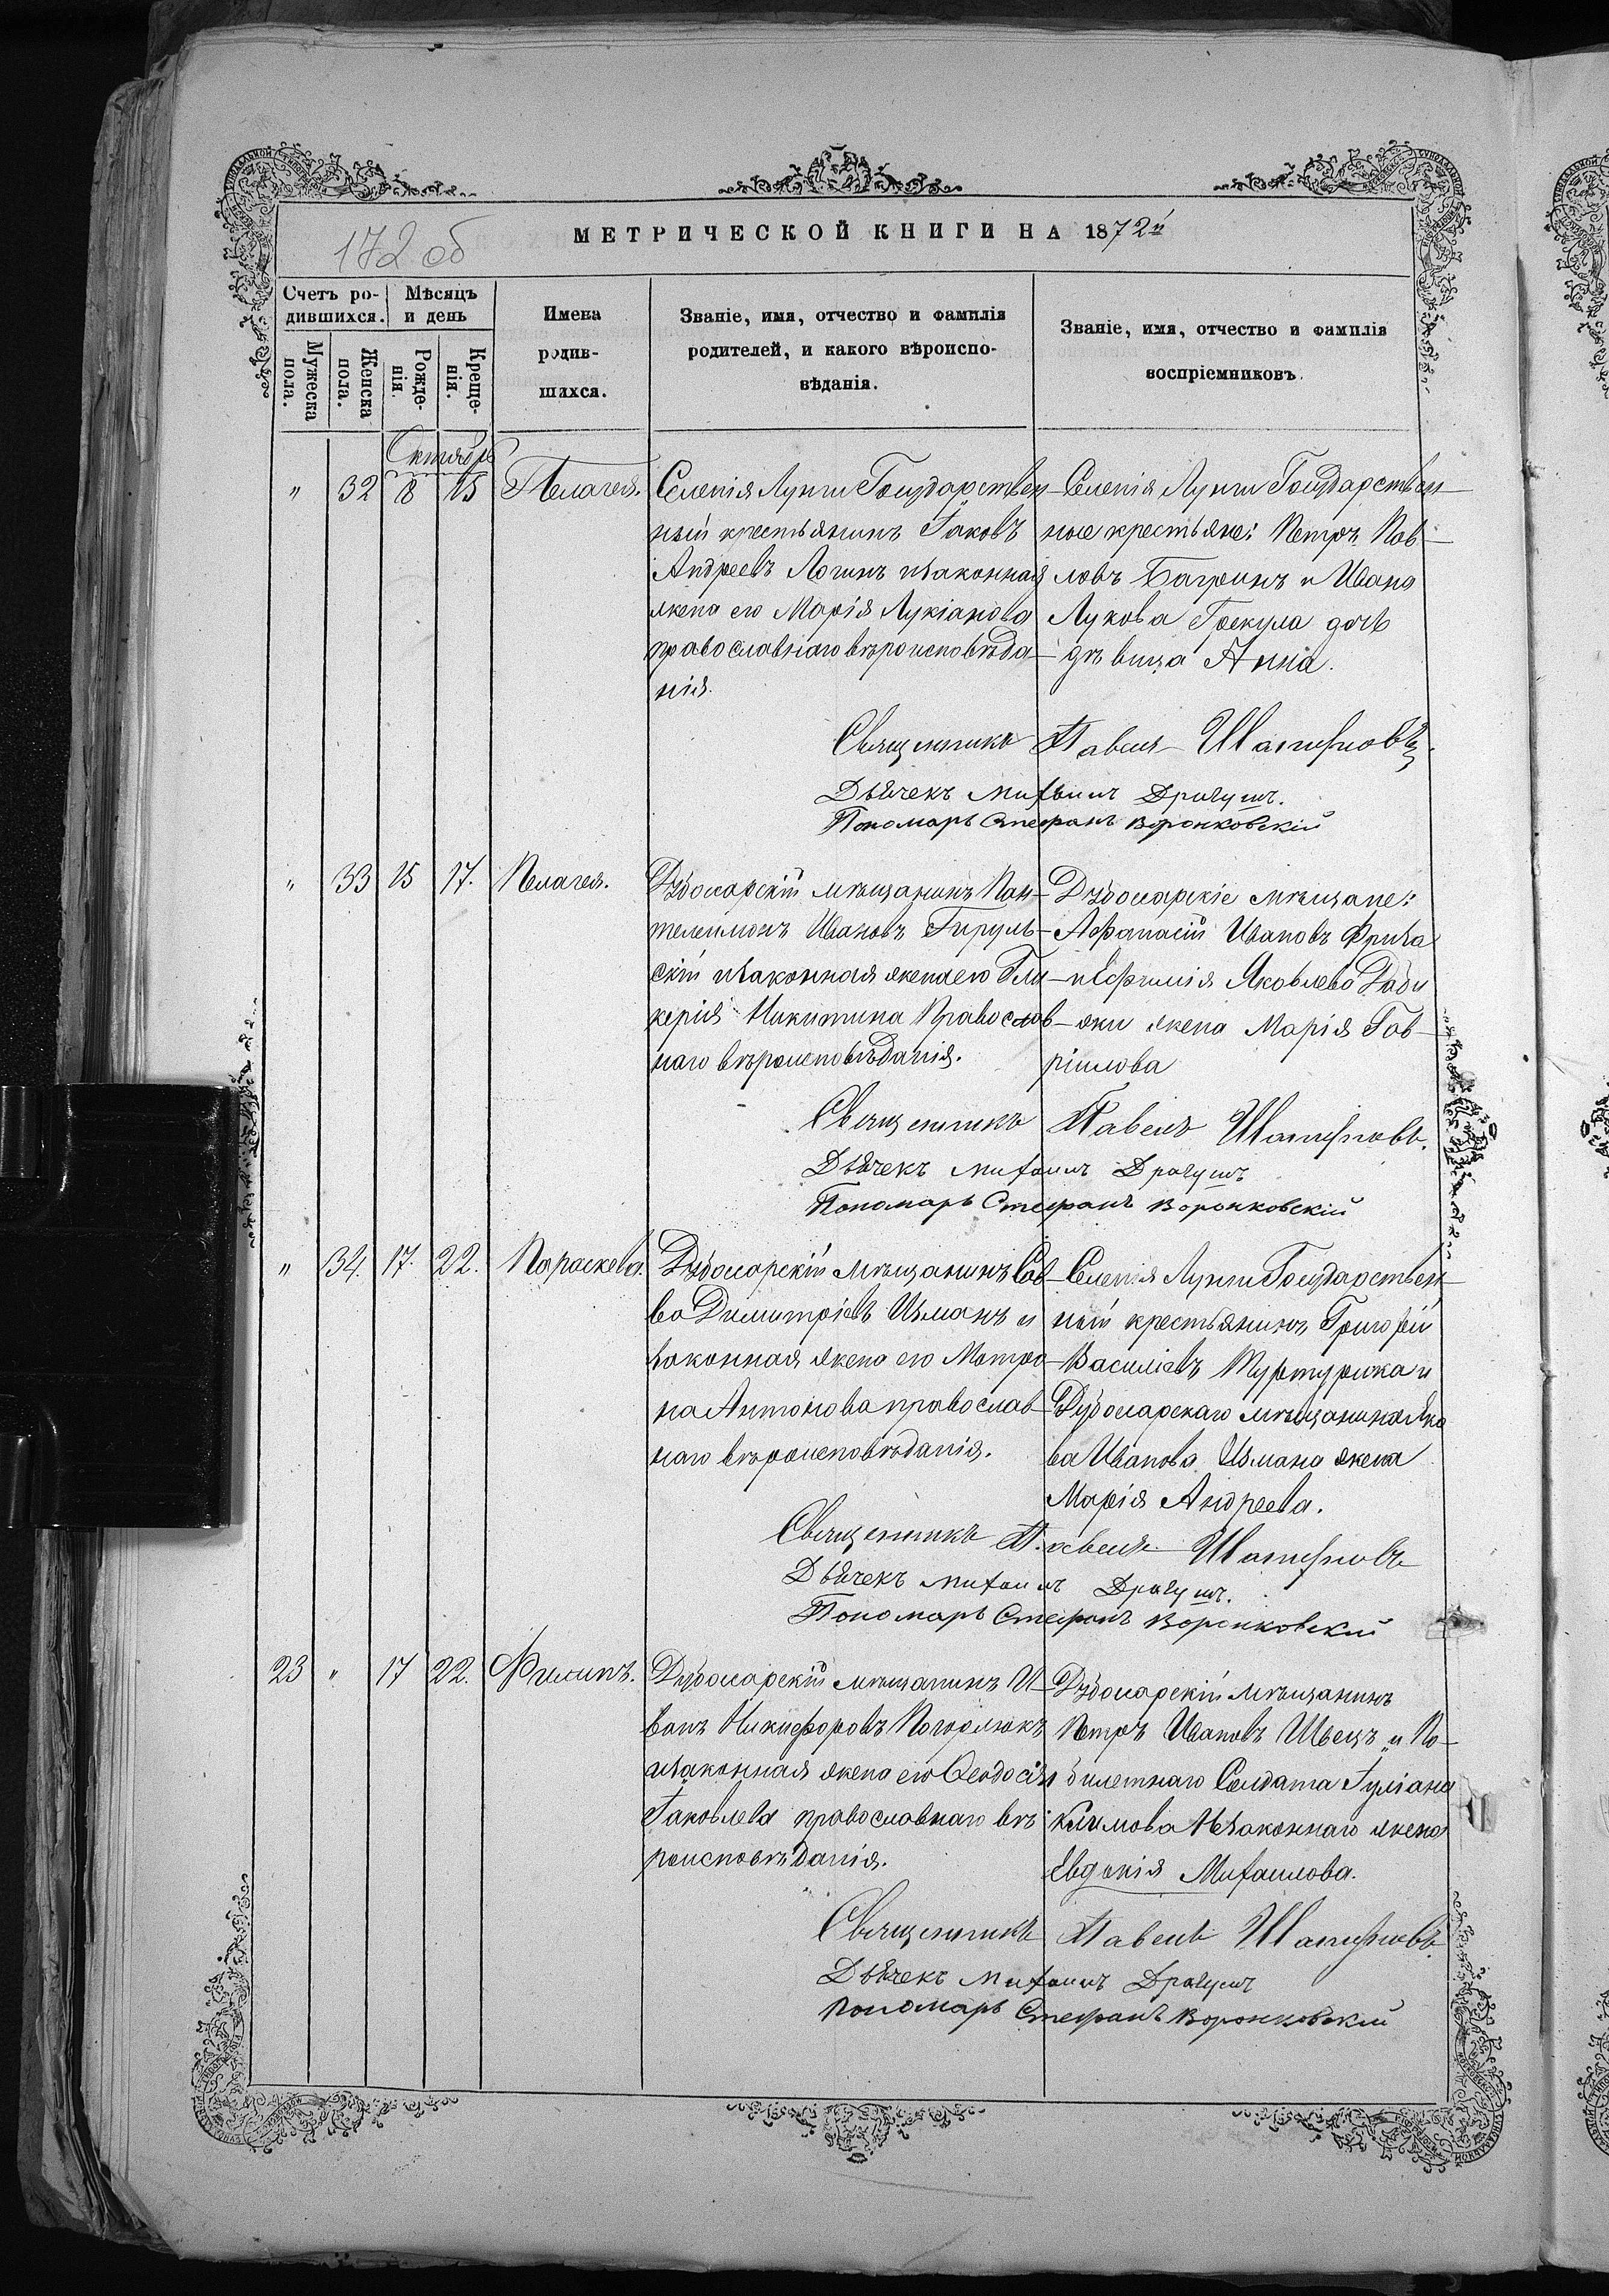 МЕТРИЧЕСКОЙ КНИГИ НА 1872й
172 об
Счетъ ро-
дившихся.
Мѣсяцъ
и день
Имена
родив-
шихся.
Званіе, имя, отчество и фамилія
родителей, и какого вѣроиспо-
вѣданія.
Званіе, имя, отчество и фамилія
воспріемниковъ.
Мужеска
пола.
Женска
пола.
Рожде-
нія.
Креще-
нія.
Октябрь
" 32 8 15 Пелагея.
Селенія Лунги Государствен-
ный крестьянинъ Іаковъ
Андреевъ Логинъ изаконная
жена его Марія Лукіанова
православнаго вѣроисповѣда-
нія.
Селенія Лунги Государствен-
ные крестьяне: Петръ Пав-
ловъ Багринъ и Ивана
Лукова Грекула дочь
дѣвица Анна.
Священникъ Павелъ
Дьячекъ Михаилъ Драгушъ.
Пономарь Стефанъ Воронковскій
" 33 15 17. Пелагея.
Дубосарскій мѣщанинъ Пан-
телеимонъ Ивановъ Гируль-
скій изаконная жена его Гли-
керія Никитина Православ-
наго вѣроисповѣданія.
Дубосарскіе мѣщане:
Афанасій Ивановъ Фрига
иЕфимія Яковлева
жена Марія Гав-
ріилова
Священникъ Павелъ
Дьячекъ Михаилъ Драгушъ
Пономарь Стефанъ Воронковскій
" 34. 17. 22. Параскева.
Дубосарскій мѣщанинъ Сав-
ва Димитріевъ Изманъ и
законная жена его Матро-
на Антонова православ-
наго вѣроисповѣданія.
Селенія Лунги Государствен-
ный крестьянинъ Григорій
Василіевъ Туртурика и
Дубосарскаго мѣщанина Яко
ва Иванова Измана жена
Марія Андреева.
Священникъ Павелъ
Дьячекъ Михаилъ Драгушъ.
Пономарь Стефанъ Воронковскій
23 " 17 22. Филипъ.
Дубосарскій мѣщанинъ И-
ванъ Никифоровъ Погорлюкъ
изаконная жена его Ѳеодосія
Іаковлева православнаго вѣ-
роисповѣданія.
Дубосарскій мѣщанинъ
Петръ Ивановъ Швецъ и По-
билетнаго Солдата Іуліана
Климова Незаконнаго жена
Евдокія Михаилова.
Священникъ Павелъ
Дьячекъ Михаилъ Драгушъ
Пономарь Стефанъ Воронковскій